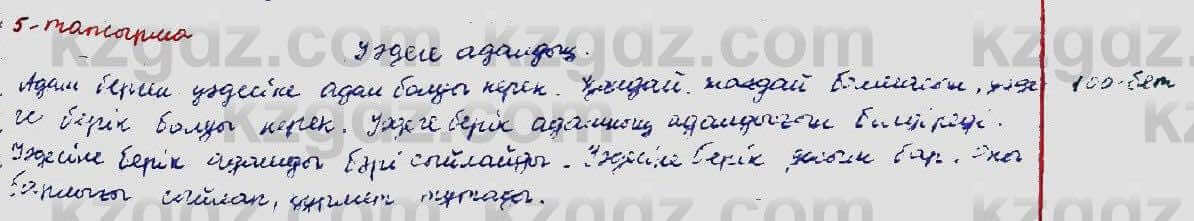 5-тапсырма
Уәдеге адалдық.
Адам берген уәдесіне адал болуы керек. Қандай жағдай болмасын, уәде 100-бет
ге берік болуы керек. Уәдеге берік адамның адалдығын білдіреді.
Уәдесіне берік адамды бәрі сыйлайды. Уәдесіне берік досым бар. Оны
барлығы сыйлап, құрмет тұтады.
kzgdz.com